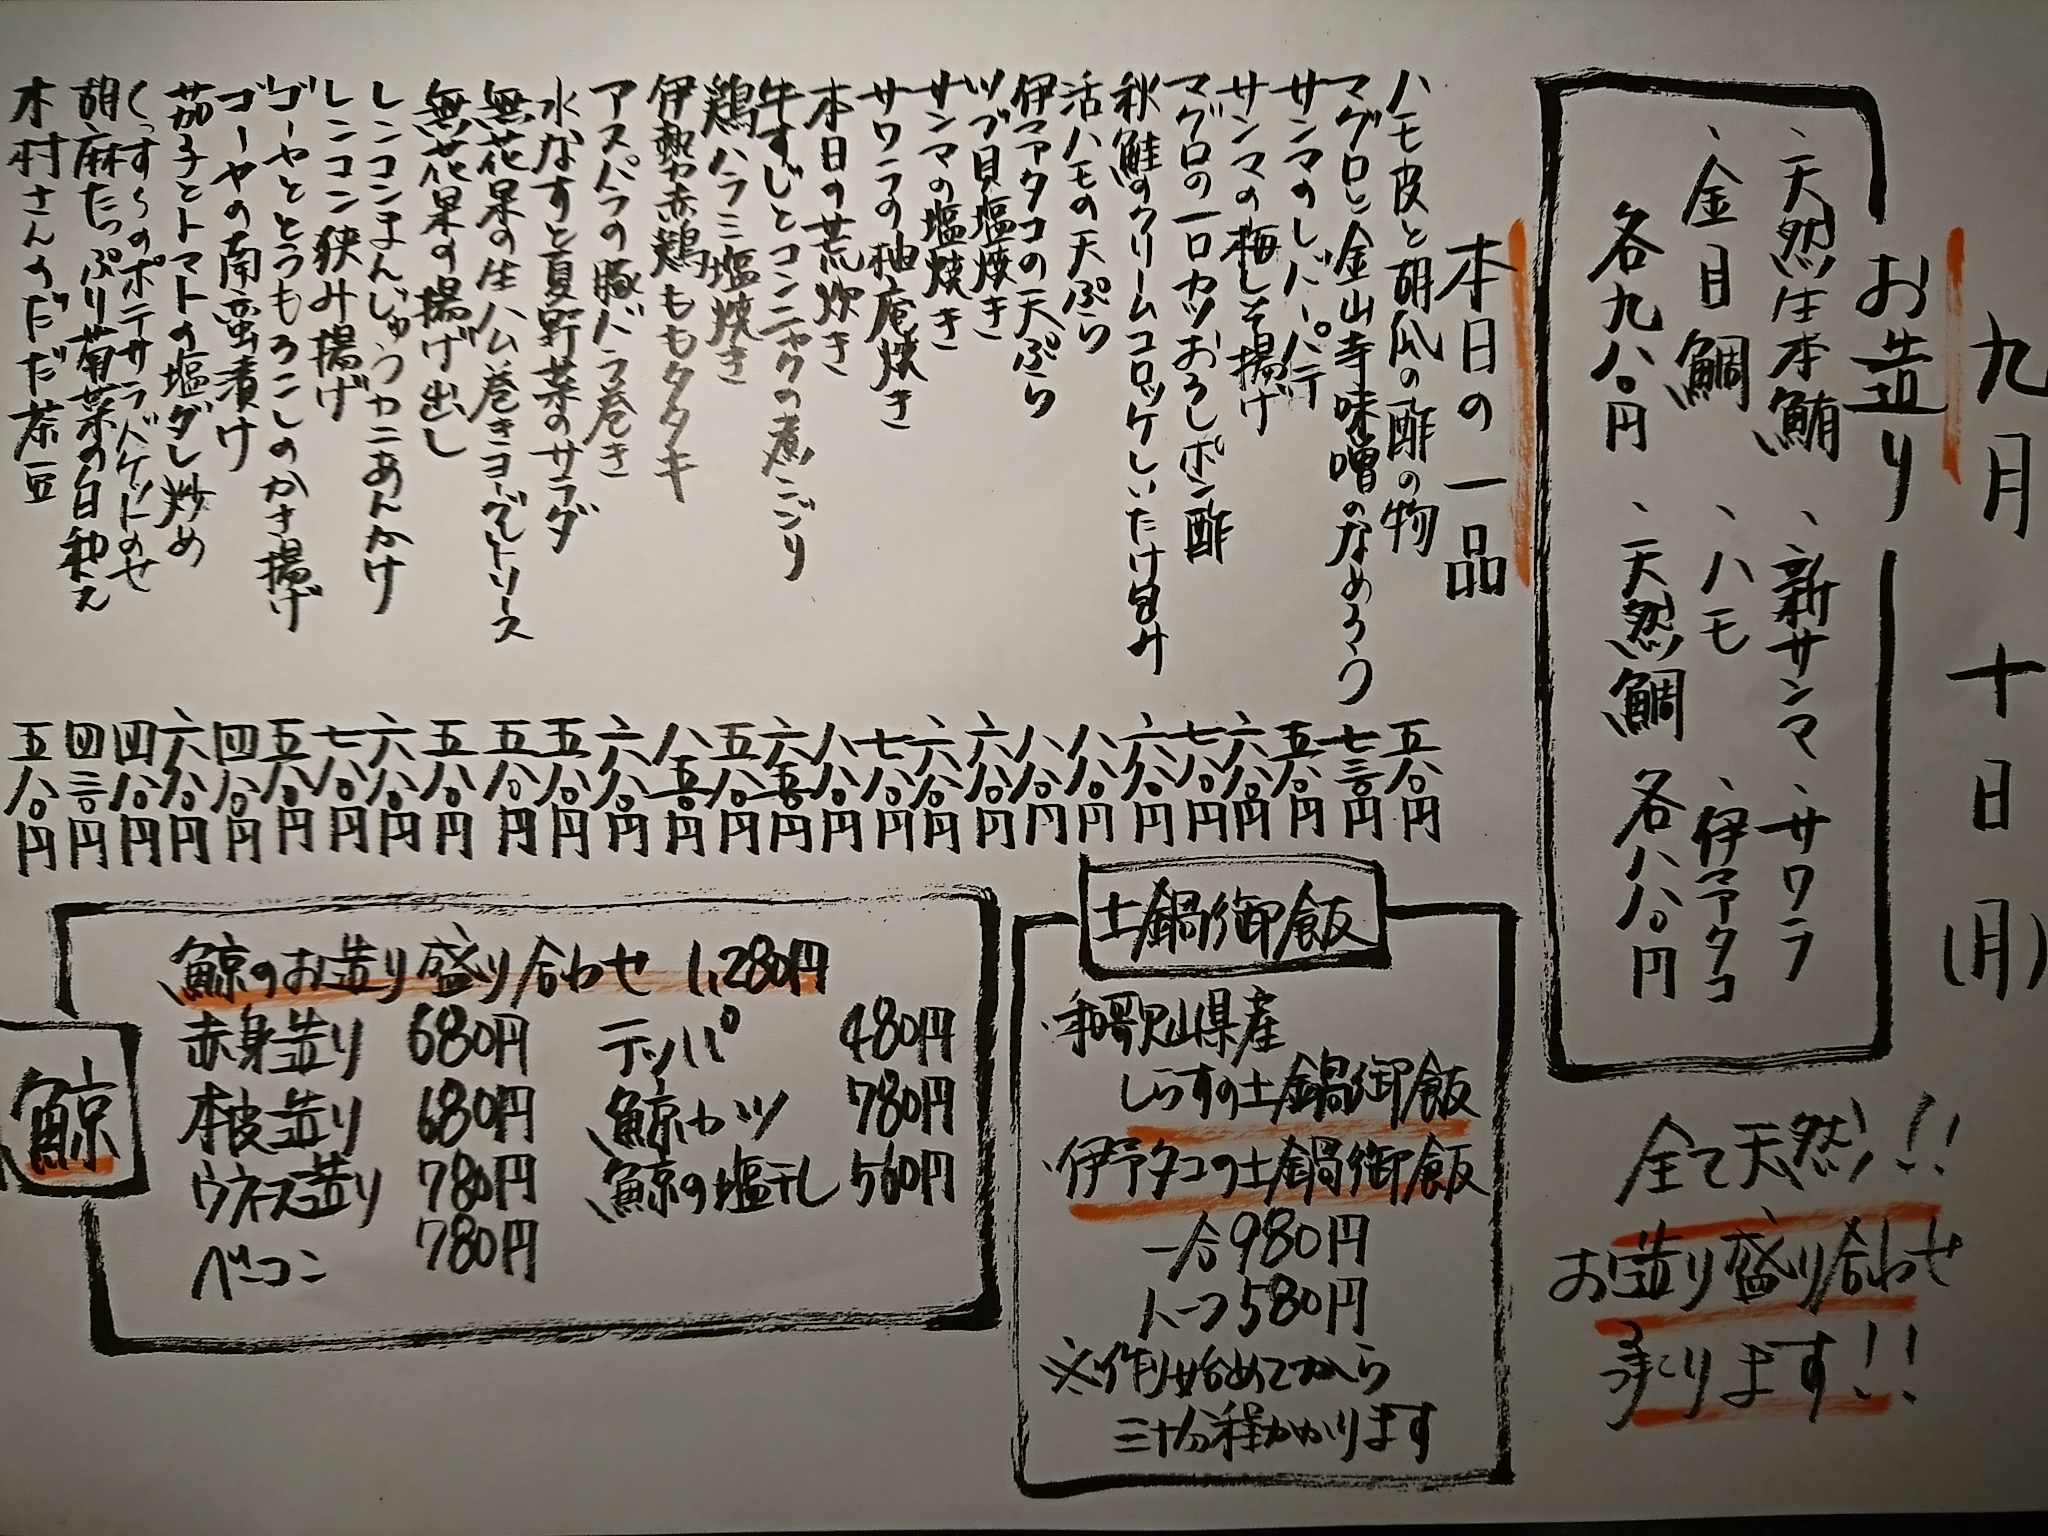 九月十日(月)
お造り
、天然生本鮪 、新サンマ 、サワラ
、金目鯛 、ハモ 、伊予タコ
各九八〇円 、天然鯛 各八八〇円
全て天然!!
お造り盛り合わせ
承ります!!
本日の一品
ハモ皮と胡瓜の酢の物 五八〇円
マグロと金山寺味噌のなめろう 七三〇円
サンマのレバーパテ 五八〇円
サンマの梅しそ揚げ 六八〇円
マグロの一口カツおろしポン酢 七八〇円
秋鮭のクリームコロッケしいたけ包み 六八〇円
活ハモの天ぷら 八八〇円
伊予タコの天ぷら 八八〇円
ツブ貝塩焼き 六八〇円
サンマの塩焼き 六八〇円
サワラの柚庵焼き 七八〇円
本日の荒炊き 八八〇円
牛すじとコンニャクの煮こごり 六五〇円
鶏ハラミ塩焼き 五八〇円
伊勢赤鶏ももタタキ 八五〇円
アスパラの豚バラ巻き 六八〇円
水なすと夏野菜のサラダ 五八〇円
無花果の生ハム巻きヨーグルトソース 五八〇円
無花果の揚げ出し 五八〇円
レンコンまんじゅうカニあんかけ 六八〇円
レンコン挟み揚げ 七八〇円
ゴーヤととうもろこしのかき揚げ 五八〇円
ゴーヤの南蛮漬け 四八〇円
茄子とトマトの塩ダレ炒め 六八〇円
ポテサラバゲットのせ 四八〇円
胡麻たっぷり菊菜の白和え 四三〇円
木村さんのだだ茶豆 五八〇円
土鍋御飯
・和歌山県産
しらすの土鍋御飯
・伊予タコの土鍋御飯
一合980円
ハーフ580円
※作り始めてから
三十分程かかります
鯨
鯨のお造り盛り合わせ 1,280円
赤身造り 680円 テッパ 480円
本皮造り 680円 鯨カツ 780円
ウネス造り 780円 鯨の塩干し 560円
ベーコン 780円